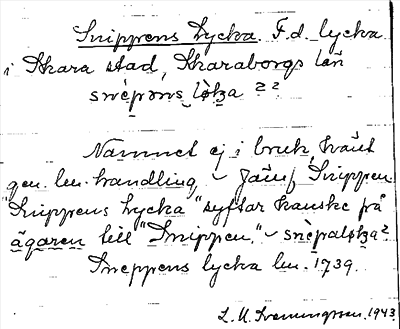 Snippens Lycka. F.d. lycka
i Skara stad, Skaraborgs län
snèpǝns lỳka 2 2
Namnet ej i bruk, känt
gen. lm. handling. ~ Jämf Snippen.
"Snippens Lycka" syftar kanske på
ägaren till "Snippen". ~
Sneppens lycka lm. 1739.
L. U. 1943